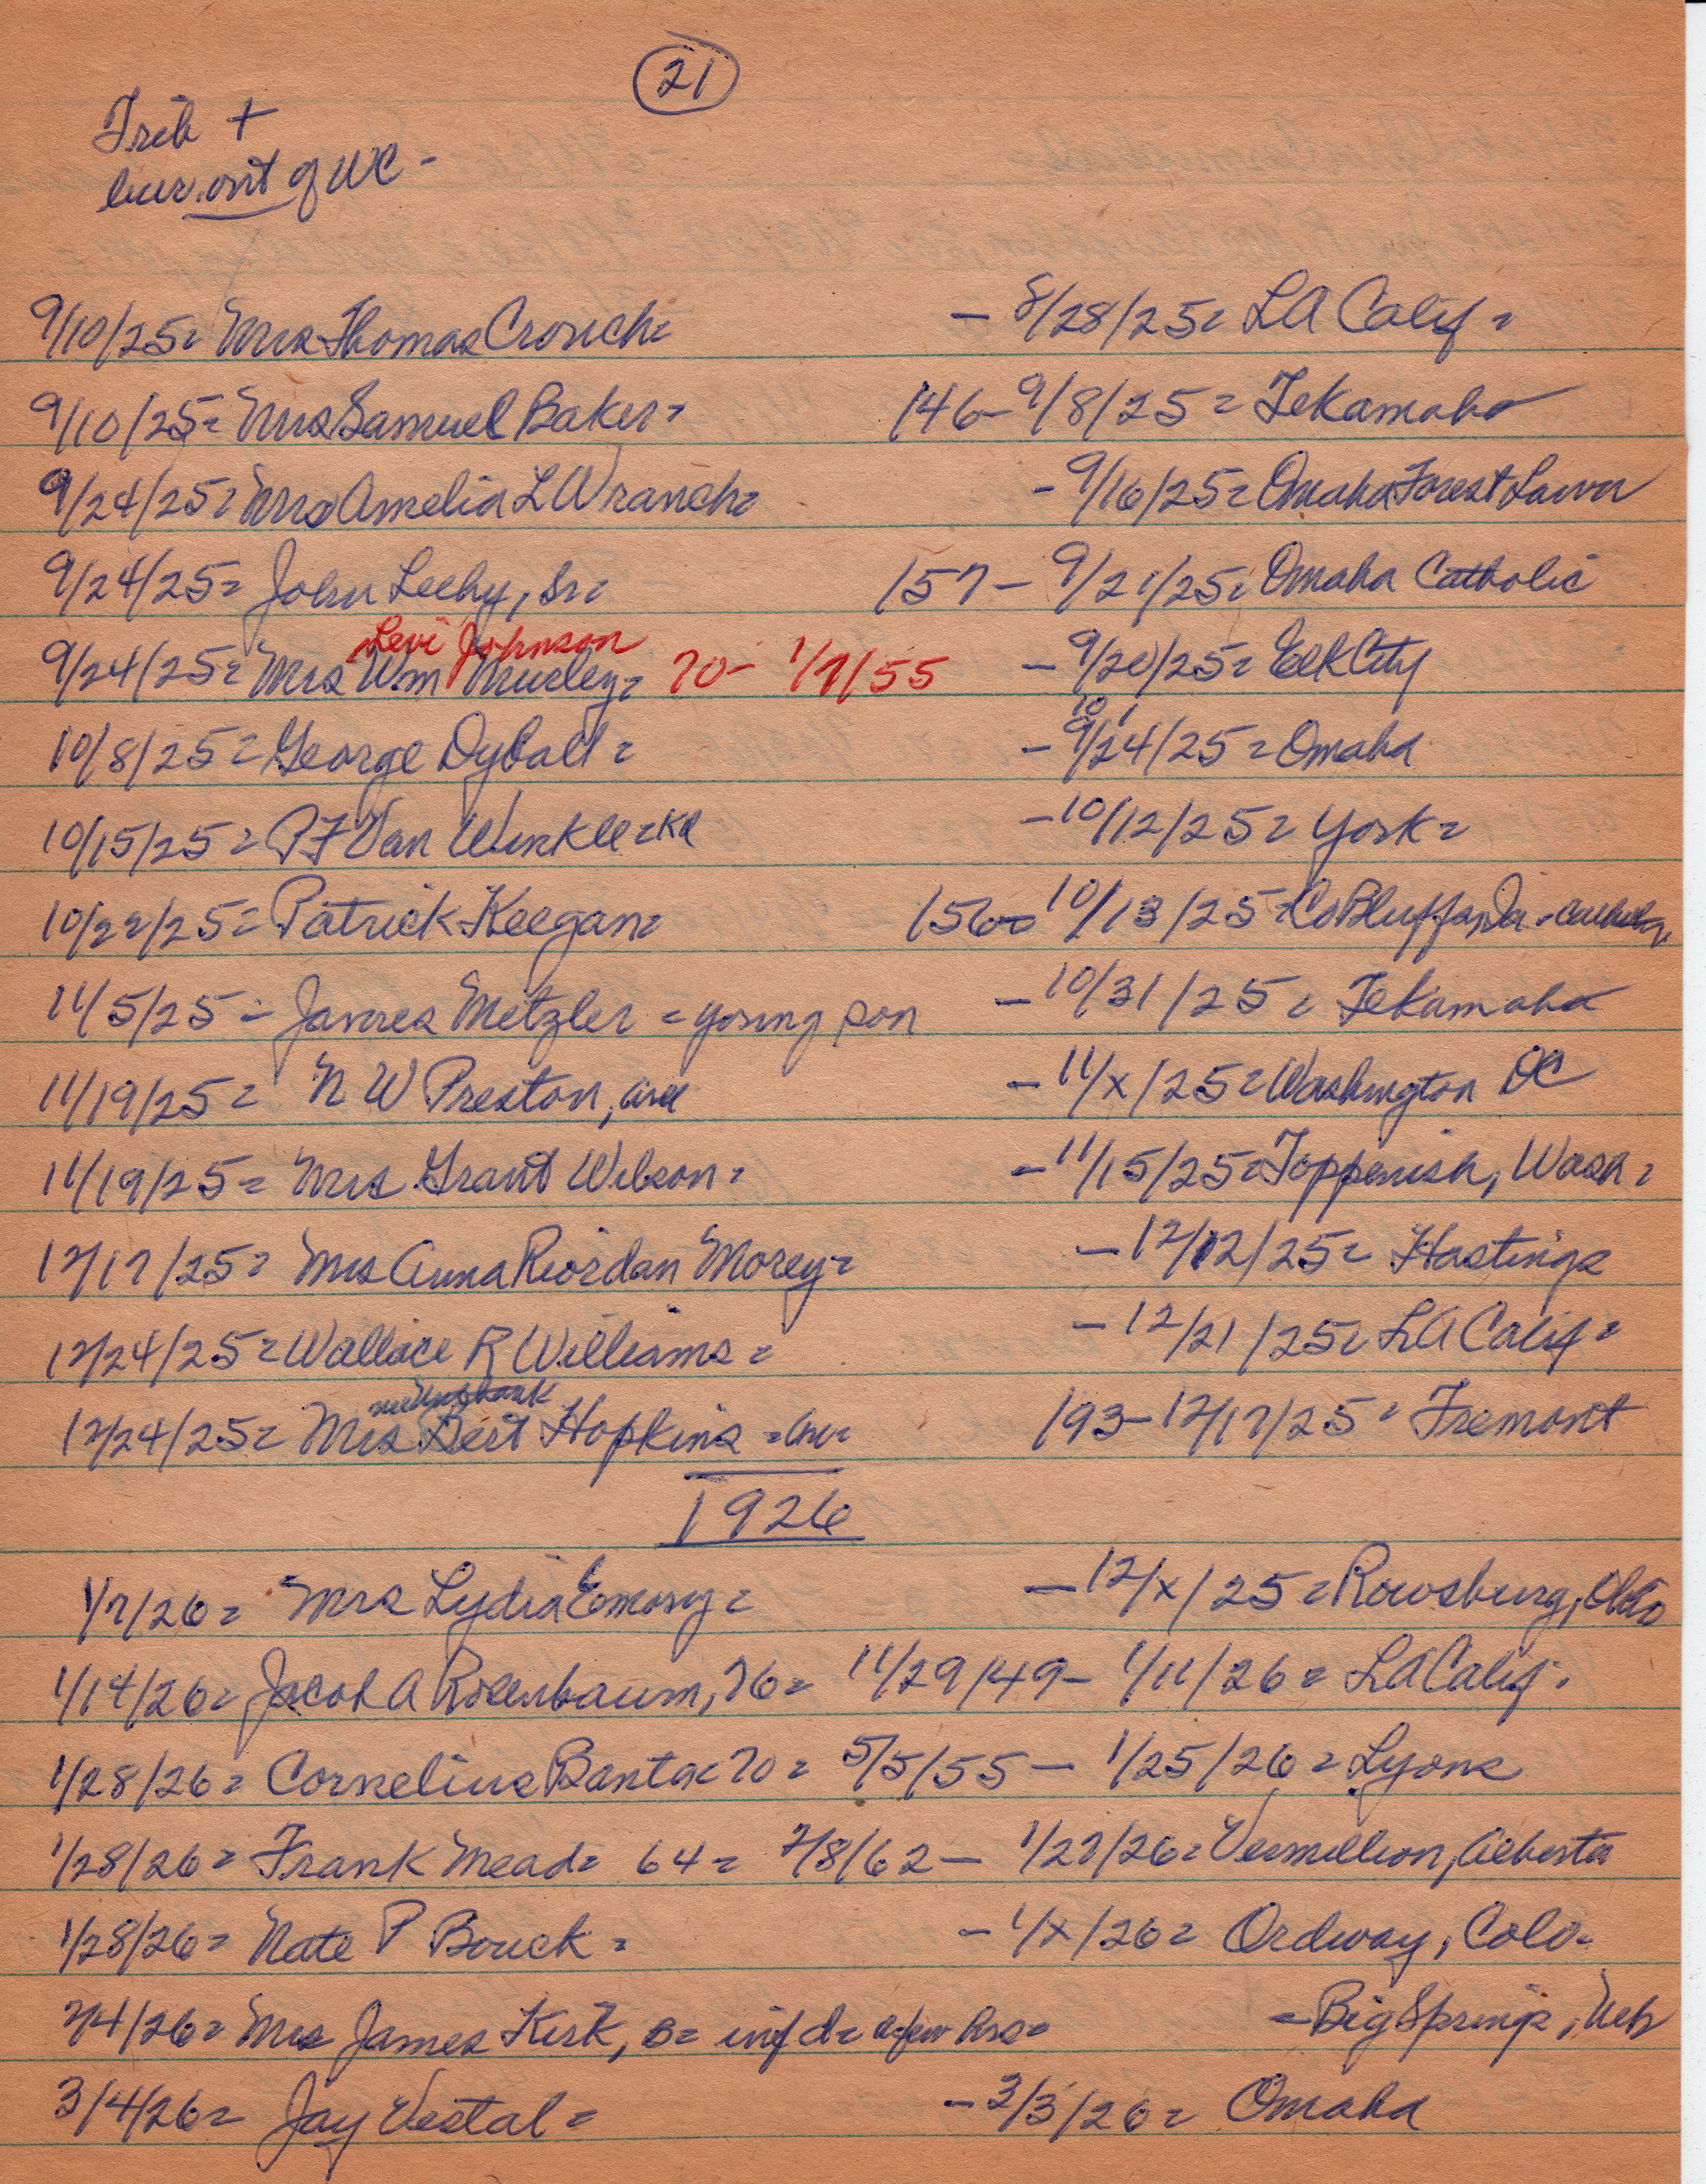 21
Trib +
bur. out of WC -
9/10/25= Mrs Thomas Crouch= - 8/28/25= LA Calif =
9/10/25= Mrs Samuel Baker= 146- 9/8/25= Tekamah
9/24/25= Mrs Amelia L Wranch= - 9/16/25= Omaha Forest Lawn
9/24/25= John Leehy, Sr= 157- 9/21/25= Omaha Catholic
Levi Johnson
9/24/25= Mrs Wm Murley= 70- 1/7/55 - 9/20/25= Elk City
10 1
10/8/25= George Dyball= - 9/24/25= Omaha
10/15/25= P F Van Winkle= - 10/12/25= York=
10/22/25= Patrick Keegan= 156= 10/13/25= Co Bluffs, Ia -
11/5/25= James Metzler = young son - 10/31/25= Tekamah
11/19/25= N W Preston, - 11/x/25= Washington DC
11/19/25= Mrs Grant Wilson= - 11/15/25= Toppenish, Wash=
12/17/25= Mrs Anna Riordan Morey= - 12/12/25= Hastings
12/24/25= Wallace R Williams= - 12/21/25= LA Calif=
12/24/25= Mrs Bert Hopkins = 193- 12/17/25= Fremont
1926
1/7/26= Mrs Lydia Emory= - 12/x/25= Rowsburg, Ohio
1/14/26= Jacob A Rosenbaum, 76= 11/29/49- 1/11/26= LA Calif.
1/28/26= Cornelius Banta= 70= 5/5/55 - 1/25/26= Lyons
1/28/26= Frank Mead= 64= 2/8/62- 1/27/26= Vermillion, Alberta
1/28/26= Nate P Bouck= - 1/x/26= Ordway, Colo=
2/4/26= Mrs James Kirk, s= inf d= a few hrs= - Big Springs, Neb
3/4/26= Jay Vestal= - 3/3/26= Omaha